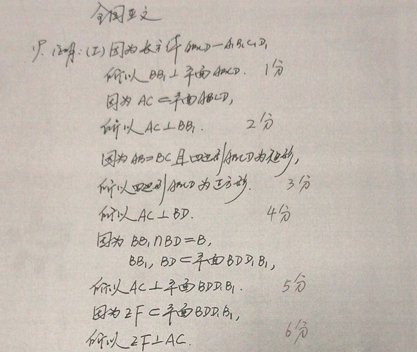 全国
证明:(I)因为长方体ABCD-A₁B₁C₁D₁
所以BB₁⊥平面ABCD. 1分
因为AC⊂平面ABCD,
所以AC⊥BB₁. 2分
因为AB=BC且四边形ABCD为矩形,
所以四边形ABCD为正方形. 3分
所以AC⊥BD. 4分
因为BB₁∩BD=B,
BB₁,BD⊂平面BDD₁B₁,
所以AC⊥平面BDD₁B₁. 5分
因为EF⊂平面BDD₁B₁,
所以EF⊥AC. 6分